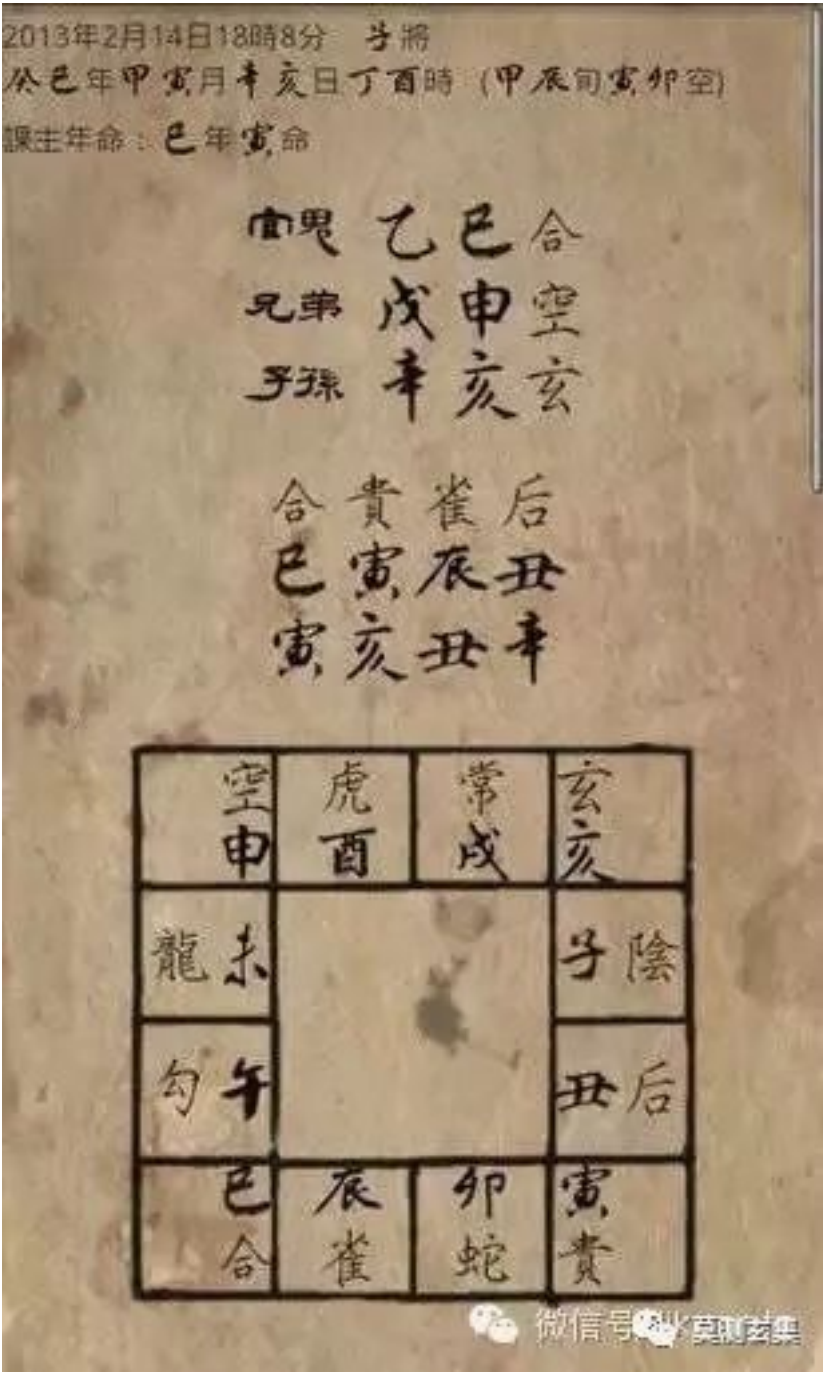 2013年2月14日18時8分 子將
癸巳年甲寅月辛亥日丁酉時 (甲辰旬寅卯空)
課主年命：巳年寅命
官鬼 乙 巳 合
兄弟 戊 申 空
子孫 辛 亥 玄
合 貴 雀 后
巳 寅 辰 丑
寅 亥 丑 辛
空 虎 常 玄
申 酉 戌 亥
龍 未 子 陰
勾 午 丑 后
巳 辰 卯 寅
合 雀 蛇 貴
微信号